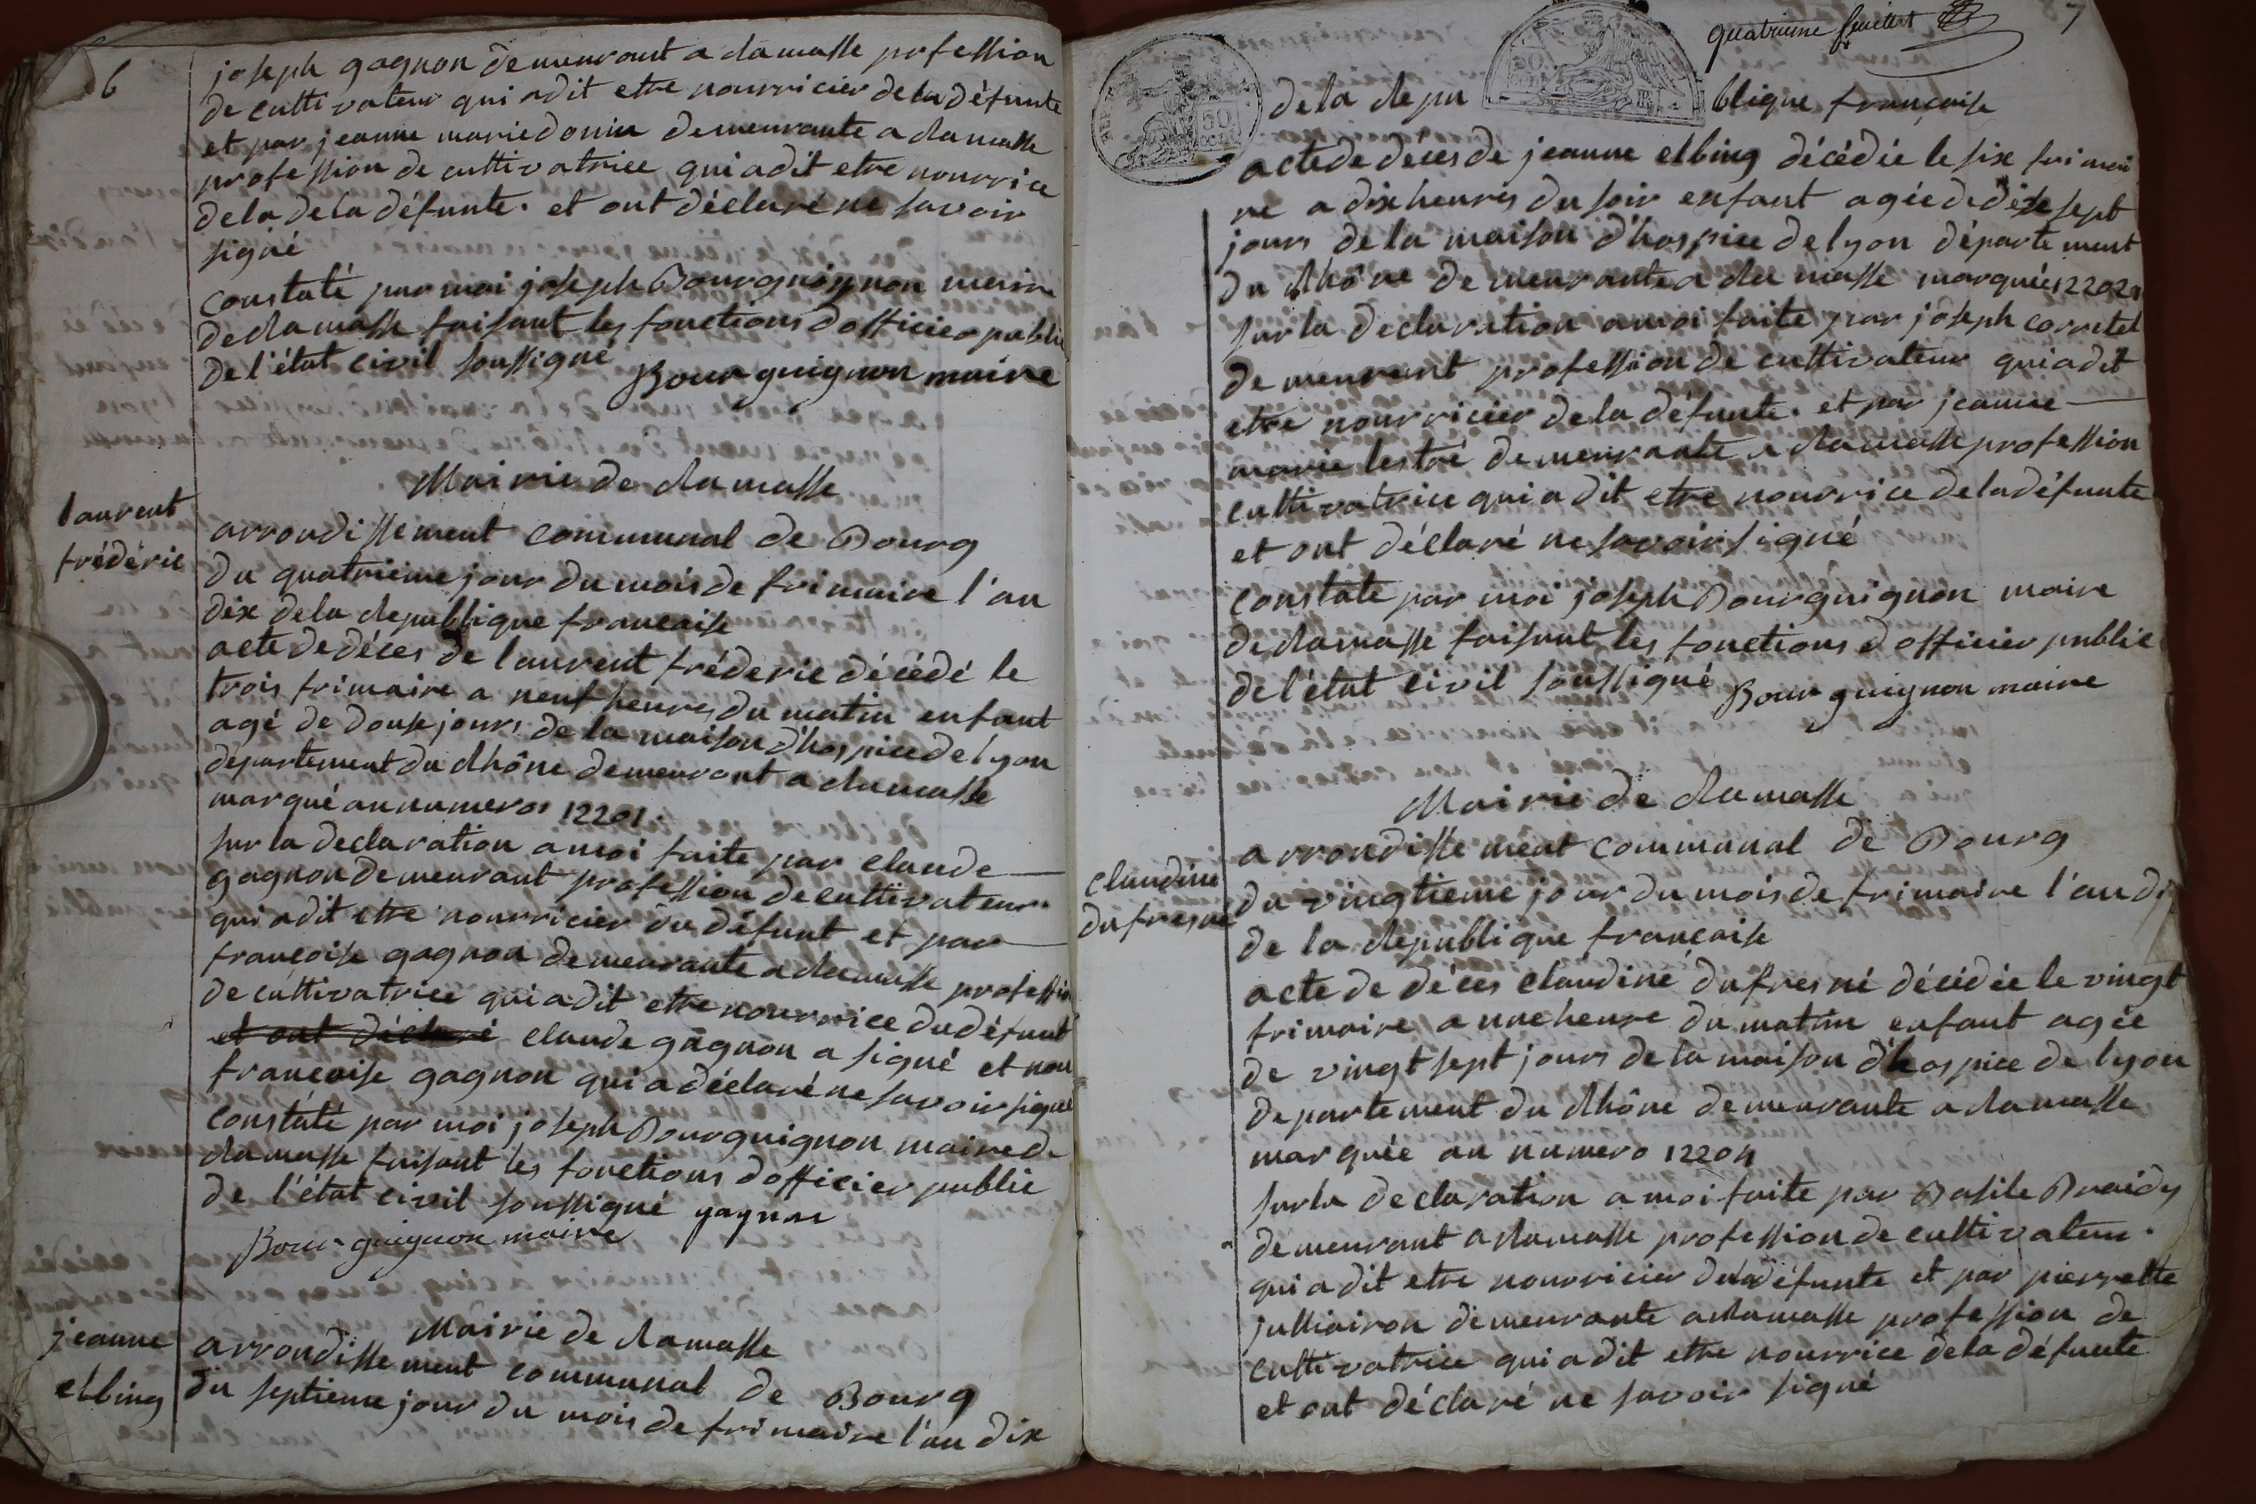 6
joseph gagnon demeurant a Ramasse profession
de cultivateur qui a dit etre nourricier de la défunte
et par jeanne marie donin demeurante a Ramasse
profession de cultivatrice qui a dit etre nourrice
de la de la défunte. et ont déclaré ne savoir
signé
constaté par moi joseph Bourguignon maire
de Ramasse faisant les fonctions d'officier public
de l'état civil soussigné Bourguignon maire
Mairie de Ramasse
laurent
fréderic
arrondissement communal de Bourg
du quatrieme jour du mois de frimaire l'an
dix de la Republique francaise
acte de déces de laurent fréderic décédé le
trois frimaire a neuf heures du matin enfant
agé de douse jours de la maison d'hospice de lyon
departement du Rhône demeurant a Ramasse
marqué au numero 12201.
sur la declaration a moi faite par claude
gagnon demeurant profession de cultivateur
qui a dit etre nourricier du défunt et par
francoise gagnon demeurante a Ramasse profession
de cultivatrice qui a dit etre nourrice du défunt
et ont déclaré claude gagnon a signé et non
francoise gagnon qui a déclaré ne savoir signé
constaté par moi joseph Bourguignon maire de
Ramasse faisant les fonctions d'officier public
de l'état civil soussigné gagnon
Bourguignon maire
Mairie de Ramasse
jeanne
elbing
arrondissement communal de Bourg
du septieme jour du mois de frimaire l'an dix
quatrieme feuillet
7
de la Repu blique francaise
acte de deces de jeanne elbing décédée le six frimai
re a dix heures du soir enfant agée de dix sept
jours de la maison d'hospice de lyon département
du Rhône demeurante a Ramasse marquée 12202
sur la declaration a moi faite par joseph
demeurant profession de cultivateur qui a dit
etre nourricier de la défunte. et par jeanne
marie lestré demeurante a Ramasse profession
cultivatrice qui a dit etre nourrice de la défunte
et ont déclaré ne savoir signé
constaté par moi joseph Bourguignon maire
de Ramasse faisant les fonctions d'officier public
de l'état civil soussigné Bourguignon maire
Mairie de Ramasse
claudine
dufresne
arrondissement communal de Bourg
du vingtieme jour du mois de frimaire l'an dix
de la Republique francaise
acte de déces claudine dufresne décédée le vingt
frimaire a une heure du matin enfant agée
de vingt sept jours de la maison d'hospice de lyon
departement du Rhône demeurante a Ramasse
marquée au numero 12204
sur la declaration a moi faite par Basile Braidy
demeurant a Ramasse profession de cultivateur.
qui a dit etre nourricier de la défunte et par pierrette
julliairon demeurante a Ramasse profession de
cultivatrice qui a dit etre nourrice de la défunte
et ont déclaré ne savoir signé